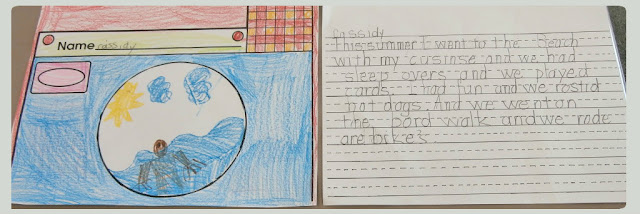 Name cassidy
cassidy
this summer I went to the beach
with my casinse and we had
sleep overs and we played
cards. I had fun and we rostid
hot dogs. And we went on
the bord walk and we rode
are bikes.